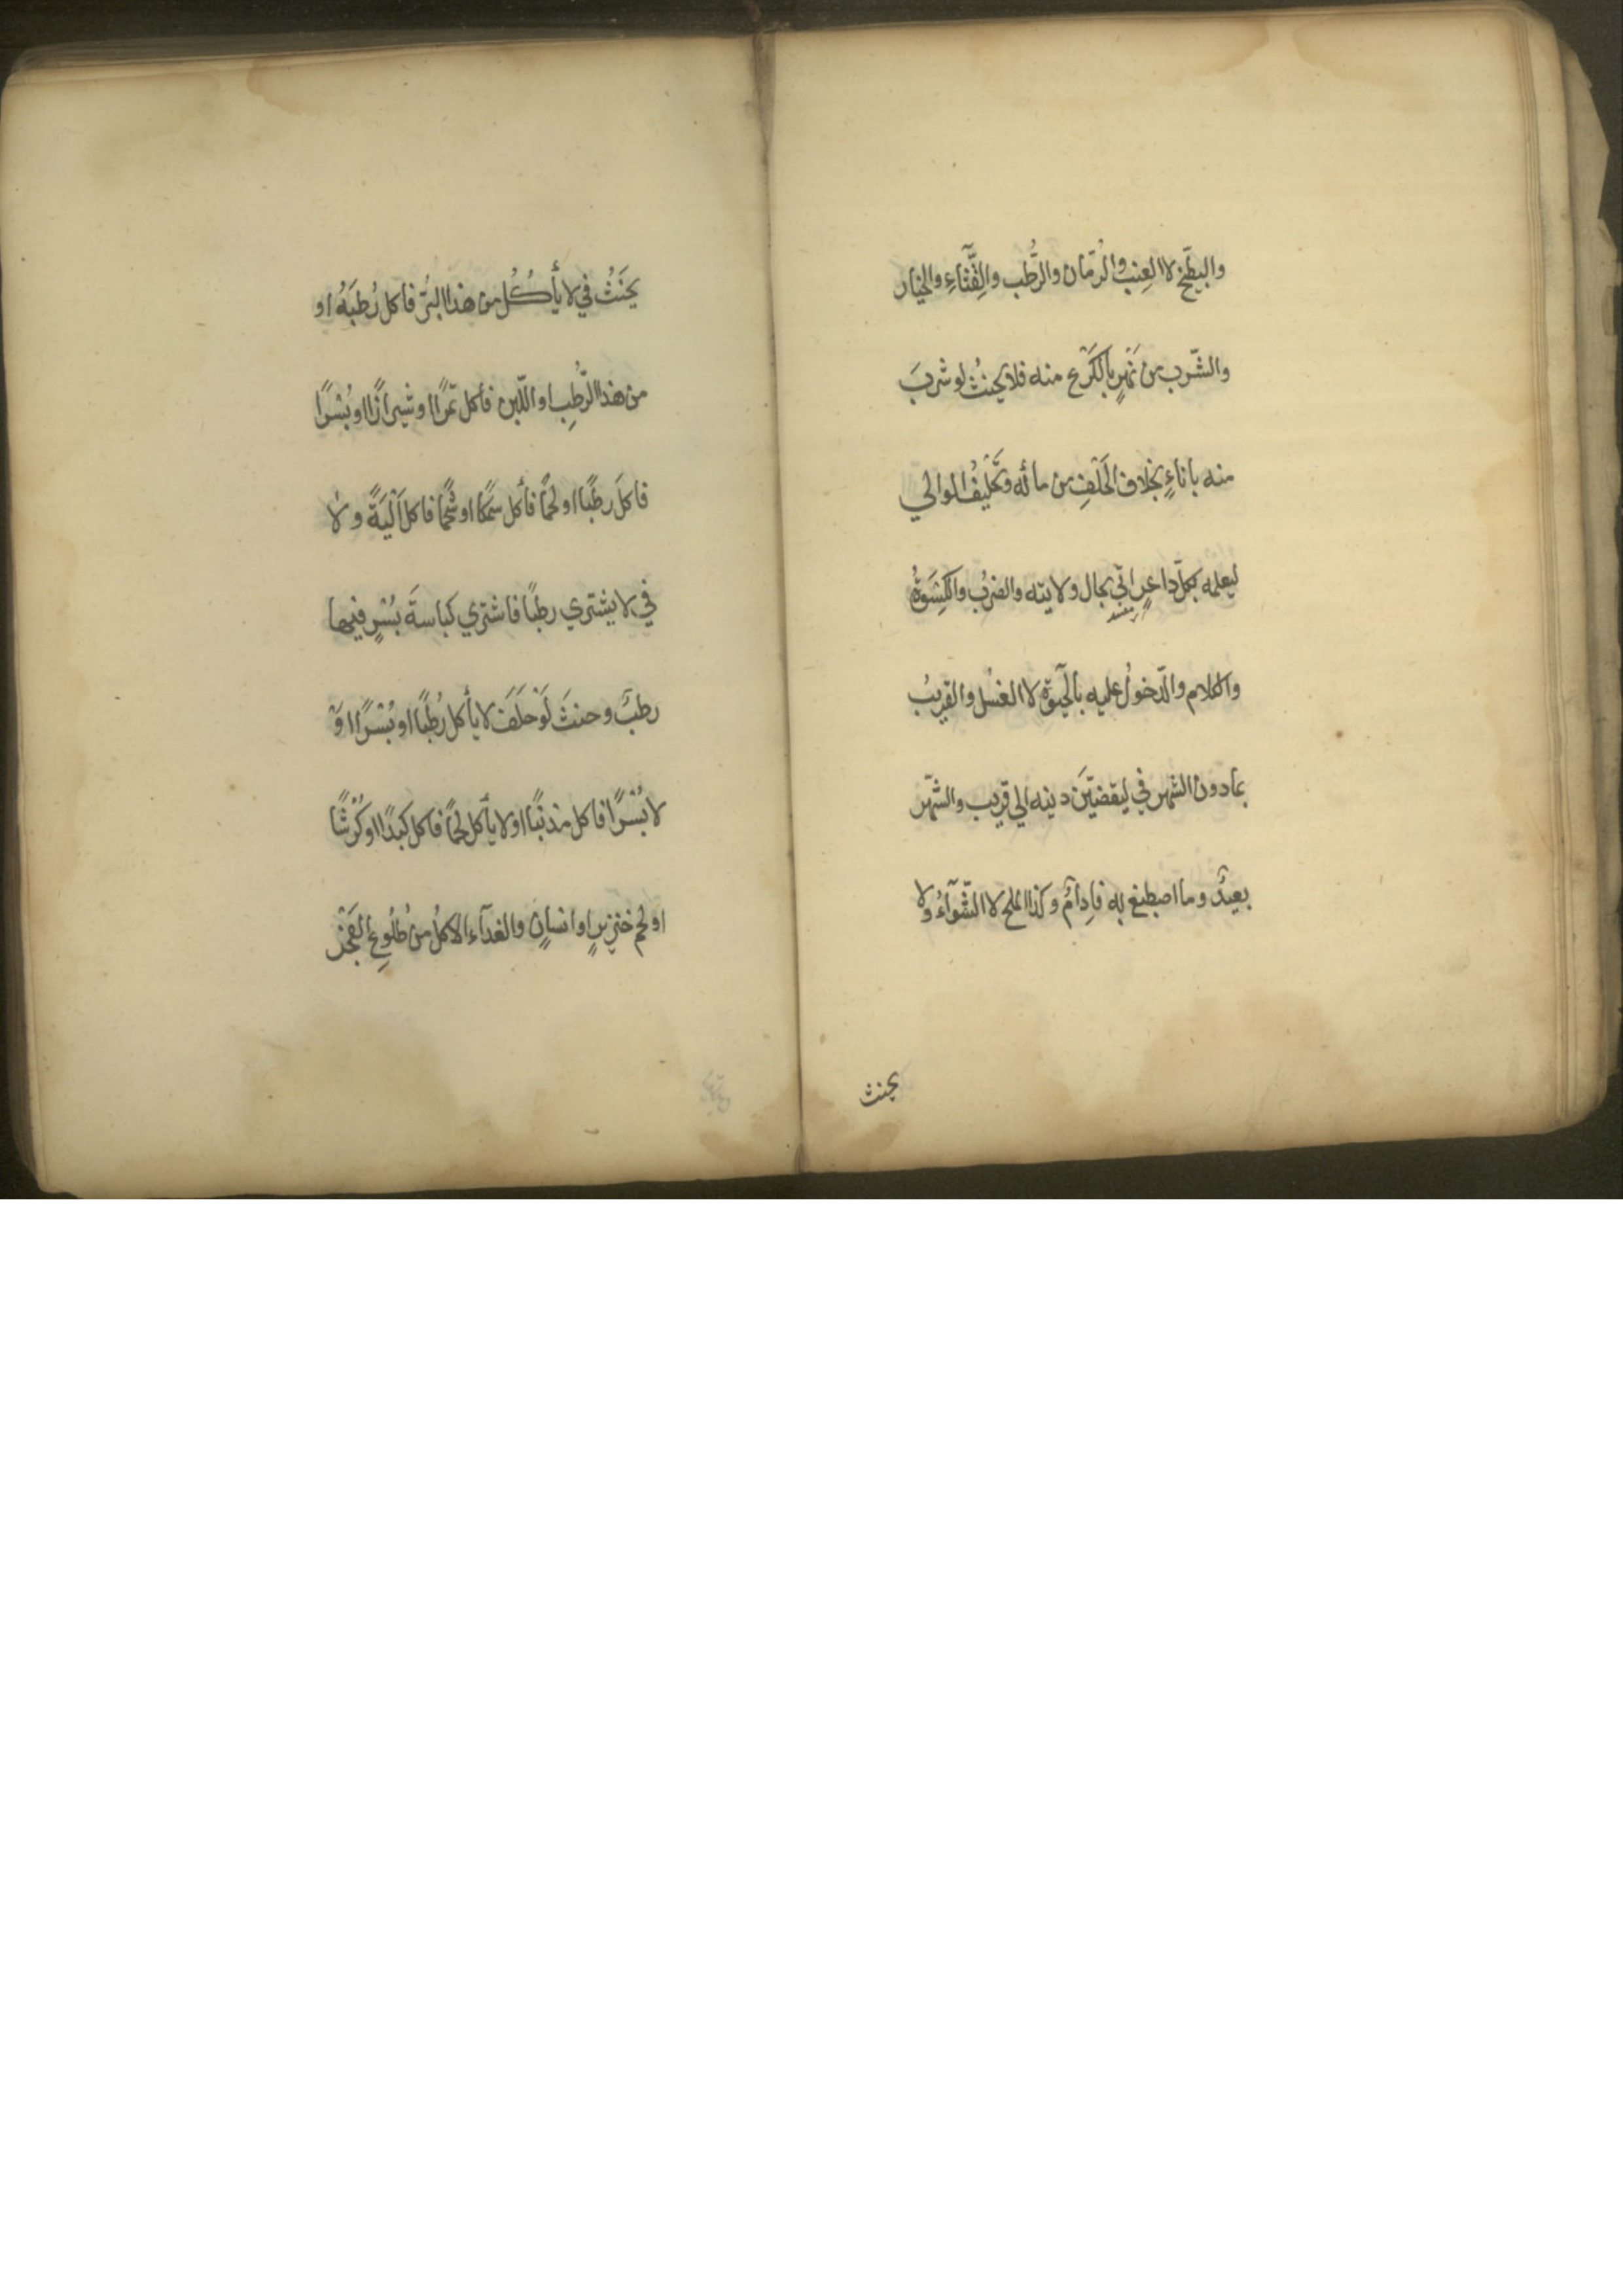 والبطّيخ لا العِنب والرّمّان والرُّطب والقِثّآءِ والخيار
والشّرب من نَهْرٍ بالكَرْع منه فلا يحنثُ لو شربَ
منه باناءٍ بخلاف الحَلْفِ من مائه وتحَليفُ الوالي
ليعلمه بكلّ داعرٍ اتي بحال ولايته والضربُ والكِسْوةُ
مفسد
والكلام والدّخولُ عليه بالحيٰوة لا الغسْل والقريبُ
بمادون الشهر في ليقضيّن دينه الي قريب والشّهر
بعيدٌ وما اصطبغ به فادِامٌ وكذا الملح لا الشّوآءُ ولا
يحنث
يحنَثُ في لا يأكُلُ من هذا البُسْر فاكل رُطبَهُ او
من هذا الرُّطبِ او اللّبن فأكل تمرًا او شيرازًا او بُسْرًا
فاكلَ رطبًا او لحمًا فأكل سمكًا او شحْمًا فاكل اَلْيَةً ولا
في لا يشتري رطبًا فاشتري كباسةَ بُسْرٍ فيها
رطبٌ وحنثَ لَوْ حلَفَ لا يأكل رُطبًا او بُسْرًا اوْ
لا بُسْرًا فاكل مذنّبًا او لا يأكل لحمًا فاكل كبدًا او كَرْشًا
او لحم خنزيرٍ او انسانٍ والغدآء الاكلُ من طُلُوعِ الفَجْر